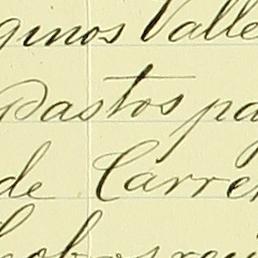 ginos Valle
Pastos pa
de Carre